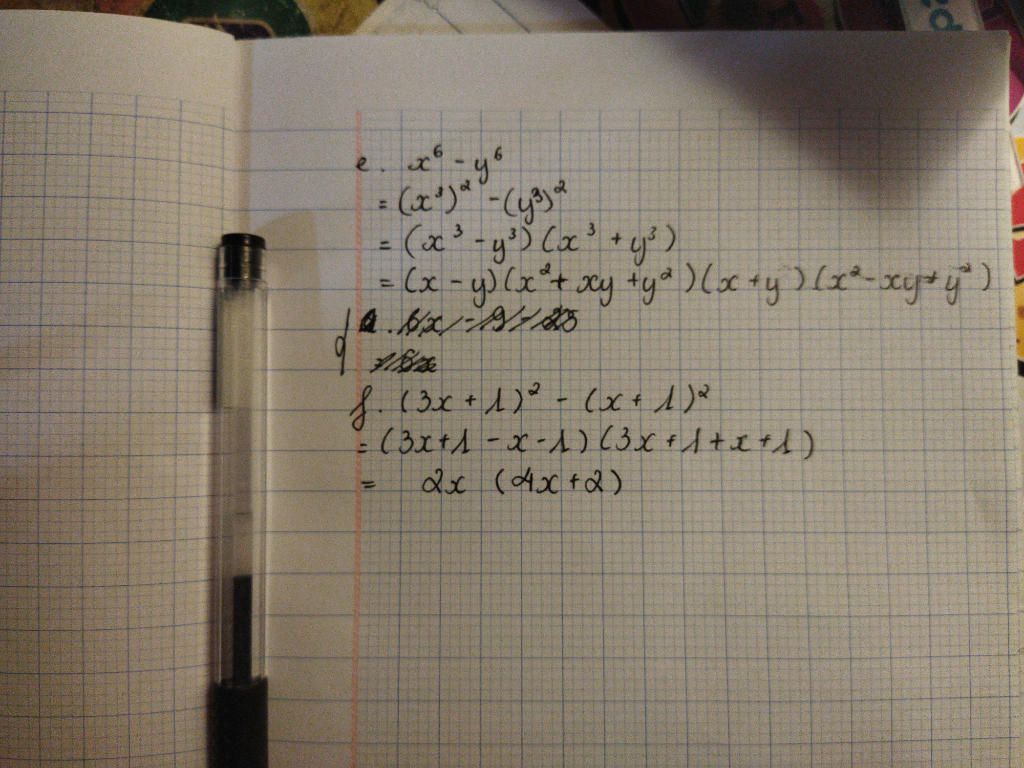 e. x⁶ - y⁶
= (x³)² - (y³)²
= (x³ - y³) (x³ + y³)
= (x - y) (x² + xy + y²) (x + y) (x² - xy + y²)
f. (3x + 1)² - (x + 1)²
= (3x + 1 - x - 1) (3x + 1 + x + 1)
= 2x (4x + 2)